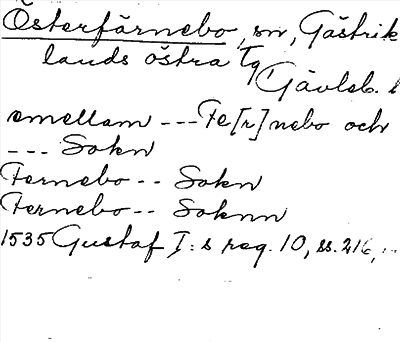 Österfärnebo, sn, Gästrik
lands östra Tg
Gävleb. l
emellam --- Fe[r]nebo och
--- Sokn
Fernebo -- Sokn
Fernebo -- Soknn
1535 Gustaf I:s reg. 10, ss. 216, ..